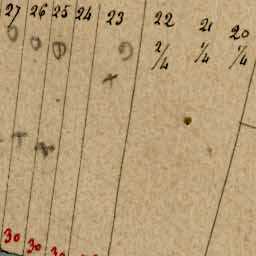 27 26 25 24 23 22 21 20
2/4 1/4 1/4
30 30 30